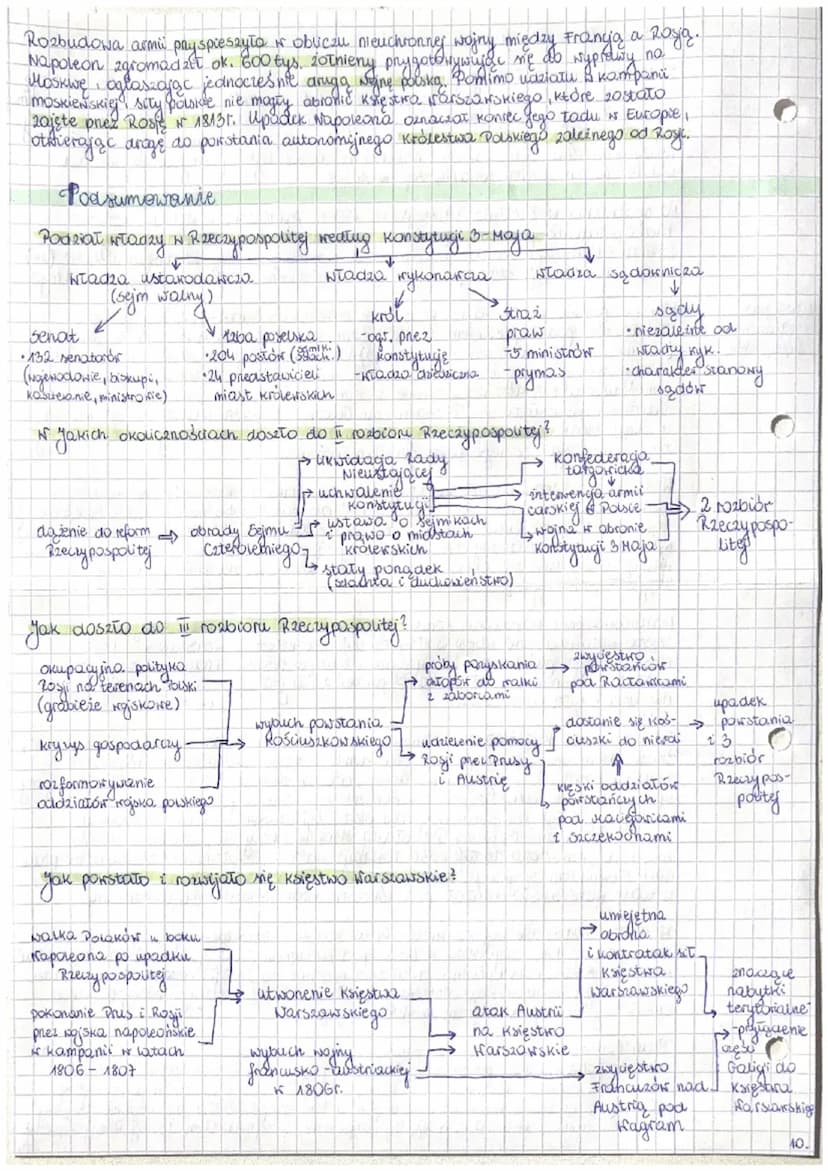 Rozbudowa armii przyspieszyła w obliczu nieuchronnej wojny między Francją a Rosją.
Napoleon zgromadził ok. 600 tys. żołnierzy przygotowywując się do wyprawy na
Moskwę, ogłaszając jednocześnie drugą wojnę polską. Pomimo udziału w kampanii
moskiewskiej, siły polskie nie mogły obronić Księstwa Warszawskiego, które zostało
zajęte przez Rosję w 1813r. Upadek Napoleona oznaczał koniec jego ładu w Europie,
otwierając drogę do powstania autonomijnego Królestwa Polskiego zależnego od Rosji.
Podsumowanie
Podział władzy w Rzeczypospolitej według Konstytucji 3-Maja
władza ustawodawcza
(sejm walny)
władza wykonawcza
władza sądownicza
senat
• 132 senatorów
(wojewodowie, biskupi,
kasztelanie, ministrowie)
izba poselska
• 204 posłów
• 24 przedstawicieli
miast królewskich
król
- ogr. przez
konstytucję
- władza dziedziczna
straż
praw
- 5 ministrów
- prymas
sądy
• niezależne od
władzy wyk.
• charakter stanowy
sądów
W jakich okolicznościach doszło do II rozbioru Rzeczypospolitej?
dążenie do reform
Rzeczypospolitej
obrady Sejmu
Czteroletniego
likwidacja Rady
Nieustającej
uchwalenie
konstytucji
ustawa o sejmikach
i prawo o miastach
królewskich
stały porządek
(szlachta i duchowieństwo)
konfederacja
targowicka
interwencja armii
carskiej w Polsce
wojna w obronie
Konstytucji 3 Maja
2 rozbiór
Rzeczypospo-
litej
Jak doszło do III rozbioru Rzeczypospolitej?
okupacyjna polityka
Rosji na terenach Polski
(grabieże wojskowe)
kryzys gospodarczy
rozformowywanie
oddziałów wojska polskiego
wybuch powstania
Kościuszkowskiego
próby pozyskania
chłopów do walki
z zaborcami
zwycięstwo
powstańców
pod Racławicami
udzielenie pomocy
Rosji przez Prusy
i Austrię
dostanie się Koś-
ciuszki do niewoli
klęski oddziałów
powstańczych
pod Maciejowicami
i Szczekocinami
upadek
powstania
i 3
rozbiór
Rzeczypos-
politej
Jak powstało i rozwijało się Księstwo Warszawskie?
walka Polaków u boku
Napoleona po upadku
Rzeczypospolitej
pokonanie Prus i Rosji
przez wojska napoleońskie
w kampanii w latach
1806 - 1807
utworzenie Księstwa
Warszawskiego
wybuch wojny
francusko-austriackiej
w 1806r.
atak Austrii
na Księstwo
Warszawskie
umiejętna
obrona
i kontratak
Księstwa
Warszawskiego
zwycięstwo
Francuzów nad
Austrią pod
Wagram
znaczące
nabytki
terytorialne
- przyłączenie
części
Galicji do
Księstwa
Warszawskiego
10.